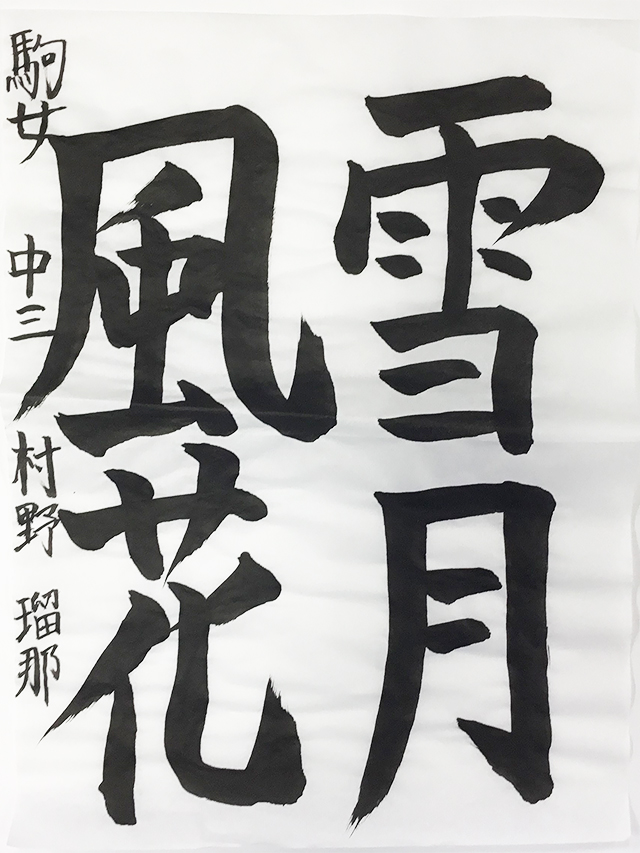 雪月
風花
駒女 中三 村野 瑠那